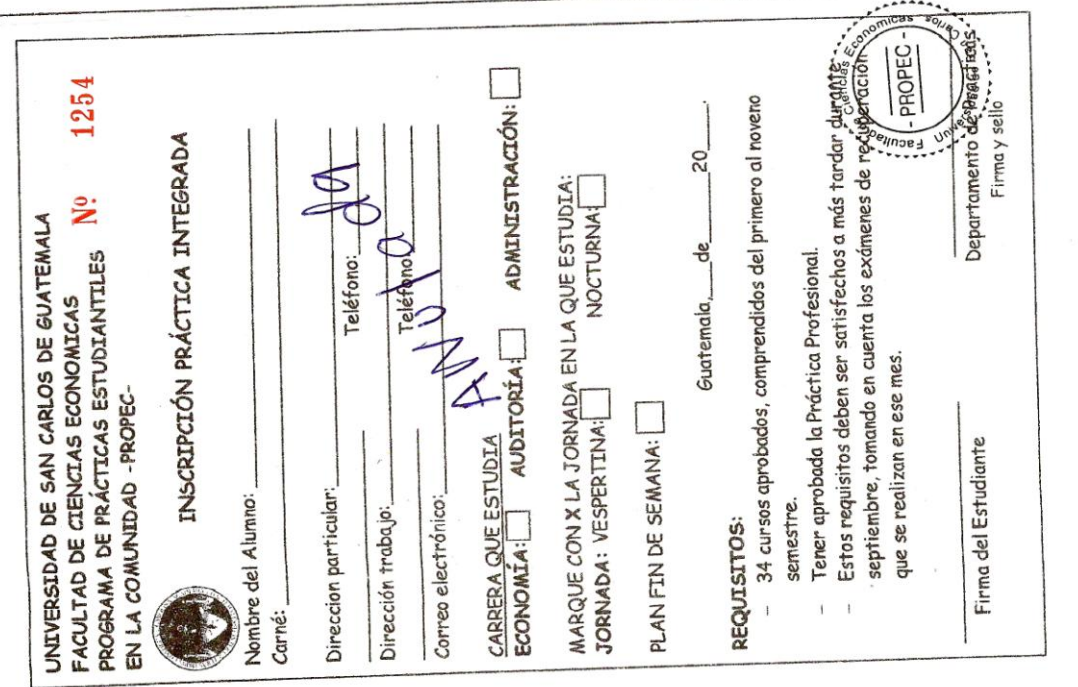 UNIVERSIDAD DE SAN CARLOS DE GUATEMALA
FACULTAD DE CIENCIAS ECONOMICAS
PROGRAMA DE PRÁCTICAS ESTUDIANTILES
EN LA COMUNIDAD -PROPEC-
Nº: 1254
INSCRIPCIÓN PRÁCTICA INTEGRADA
Nombre del Alumno:
Carné:
Direccion particular: Teléfono:
Dirección trabajo: Teléfono:
Correo electrónico:
ANULADA
CARRERA QUE ESTUDIA
ECONOMÍA: AUDITORÍA: ADMINISTRACIÓN:
MARQUE CON X LA JORNADA EN LA QUE ESTUDIA:
JORNADA: VESPERTINA: NOCTURNA:
PLAN FIN DE SEMANA:
Guatemala,___de______20___.
REQUISITOS:
- 34 cursos aprobados, comprendidos del primero al noveno
semestre.
- Tener aprobada la Práctica Profesional.
- Estos requisitos deben ser satisfechos a más tardar durante
septiembre, tomando en cuenta los exámenes de recuperación
que se realizan en ese mes.
Firma del Estudiante
Departamento de Prácticas
Firma y sello
Facultad Ciencias Economicas
- PROPEC -
Carlos